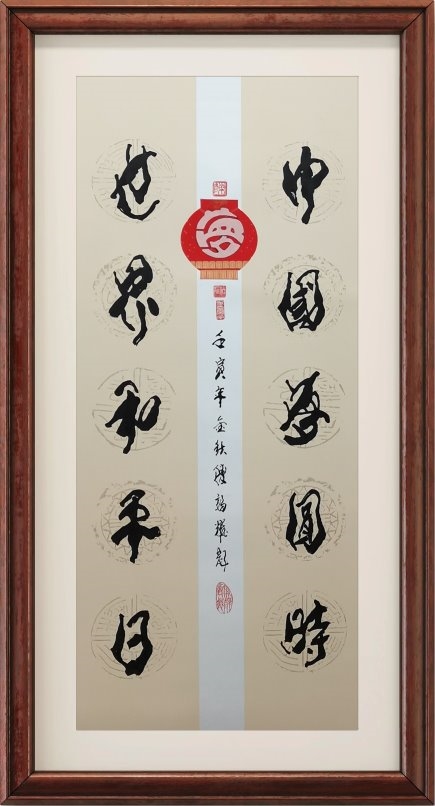 中國夢圓時
夢
壬寅年金秋
世界和平日